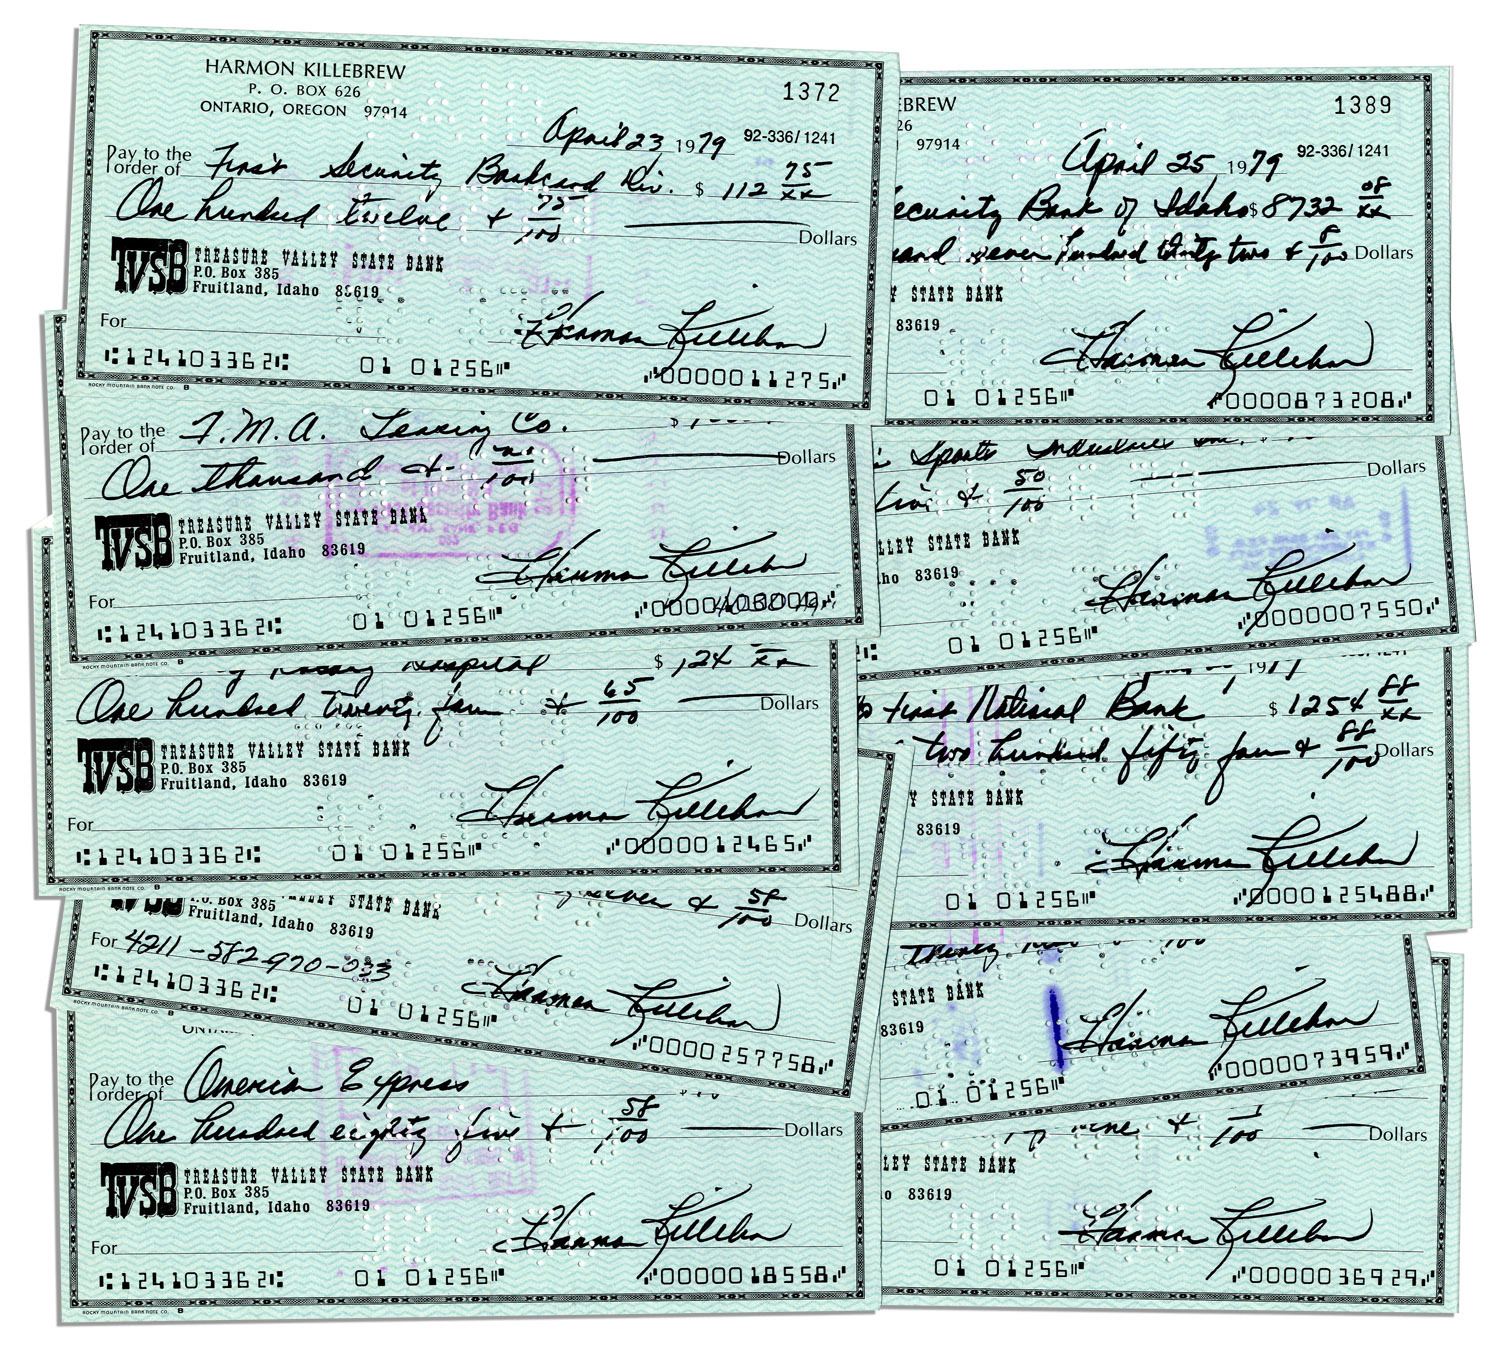 HARMON KILLEBREW
P. O. BOX 626
ONTARIO, OREGON 97914
1372
April 23 1979 92-336/1241
Pay to the order of First Security Bankcard Div. $ 112 75/xx
One hundred twelve + 75/100 Dollars
TVSB TREASURE VALLEY STATE BANK
P.O. Box 385
Fruitland, Idaho 83619
For Harmon Killebrew
124103362 01 01256 0000011275
ROCKY MOUNTAIN BANK NOTE CO. B
Pay to the order of T.M.A. Leasing Co.
One thousand + /100 Dollars
TVSB TREASURE VALLEY STATE BANK
P.O. Box 385
Fruitland, Idaho 83619
For Harmon Killebrew
124103362 01 01256
ROCKY MOUNTAIN BANK NOTE CO. B
Hospital $ 124 xx
One hundred twenty four + 65/100 Dollars
TVSB TREASURE VALLEY STATE BANK
P.O. Box 385
Fruitland, Idaho 83619
For Harmon Killebrew
124103362 01 01256 0000012465
ROCKY MOUNTAIN BANK NOTE CO. B
+ 58/100 Dollars
P.O. Box 385 STATE BANK
Fruitland, Idaho 83619
For 4211-582-970-033 Harmon Killebrew
124103362 01 01256 0000257758
ROCKY MOUNTAIN BANK NOTE CO. B
Pay to the order of American Express
One hundred eighty five + 58/100 Dollars
TVSB TREASURE VALLEY STATE BANK
P.O. Box 385
Fruitland, Idaho 83619
For Harmon Killebrew
124103362 01 01256 0000018558
ROCKY MOUNTAIN BANK NOTE CO. B
EBREW
26
97914
1389
April 25, 1979 92-336/1241
ecurity Bank of Idaho $ 8732 08/xx
sand seven hundred thirty two + 8/100 Dollars
Y STATE BANK
83619
Harmon Killebrew
01 01256 0000873208
Sports Industries Inc.
five + 50/100 Dollars
LLEY STATE BANK
ho 83619
Harmon Killebrew
01 01256 0000007550
1979
First National Bank $ 1254 88/xx
two hundred fifty four + 88/100 Dollars
Y STATE BANK
83619
Harmon Killebrew
01 01256 0000125488
100
STATE BANK
83619
Harmon Killebrew
01 01256 0000073959
nine + /100 Dollars
LEY STATE BANK
o 83619
Harmon Killebrew
01 01256 0000036929